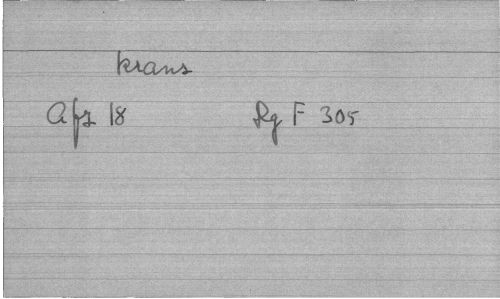 krans
Afz 18 Rg F 305